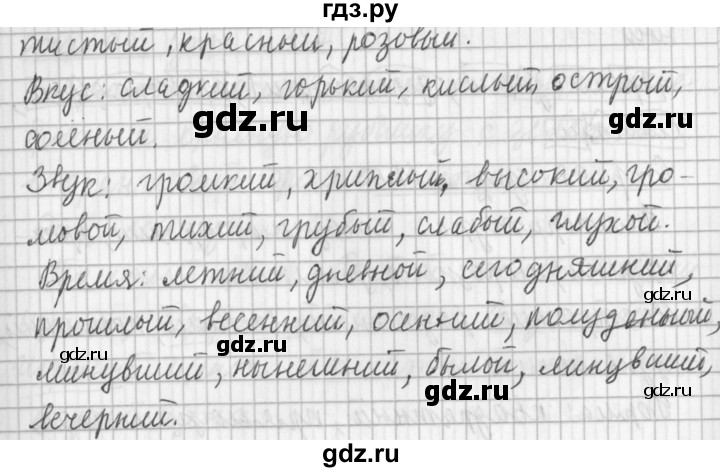 гдз.ру
тистый, красный, розовый.
Вкус: сладкий, горький, кислый, острый,
gdz.ru
gdz.ru
солёный.
Звук: громкий, хриплый, высокий, гро-
мовой, тихий, грубый, слабый, глухой.
Время: летний, дневной, сегодняшний,
gdz.ru
прошлый, весенний, осенний, полуденный,
gdz.ru
gdz.ru
минувший, нынешний, былой, минувший,
gdz.ru
gdz.ru
вечерний.
gdz.ru